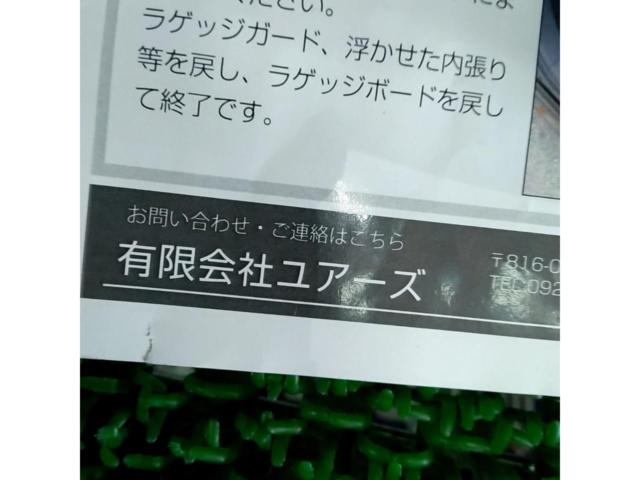 ください。
ラゲッジガード、浮かせた内張り
等を戻し、ラゲッジボードを戻し
て終了です。
お問い合わせ・ご連絡はこちら
有限会社ユアーズ
〒816-0
TEL:092